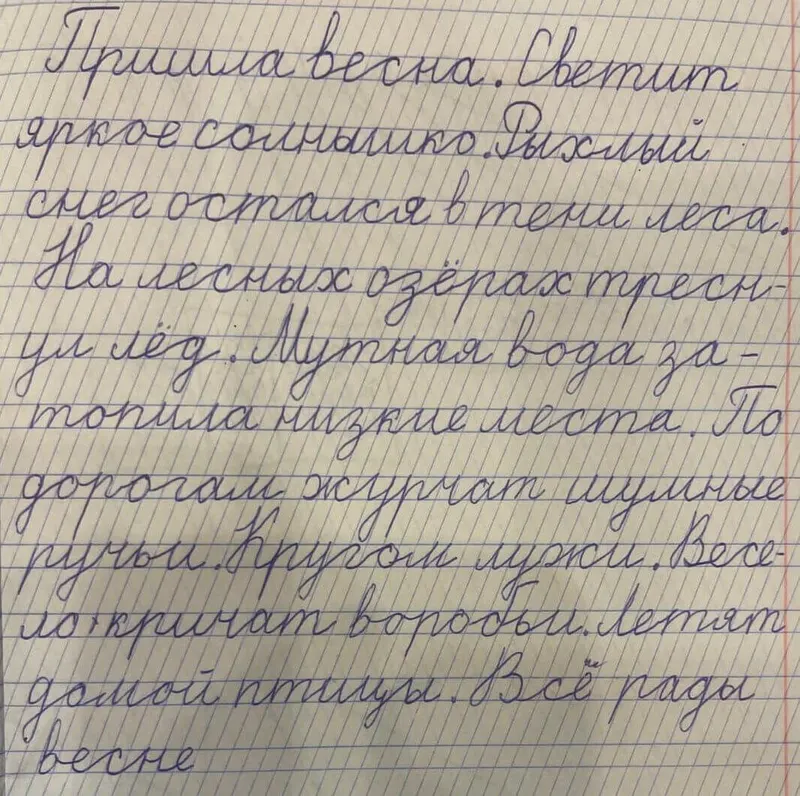 Пришла весна. Светит
яркое солнышко. Рыхлый
снег остался в тени леса.
На лесных озёрах тресн-
ул лёд. Мутная вода за-
топила низкие места. По
дорогам журчат шумные
ручьи. Кругом лужи. Весе-
ло кричат воробьи. Летят
домой птицы. Всё рады
весне